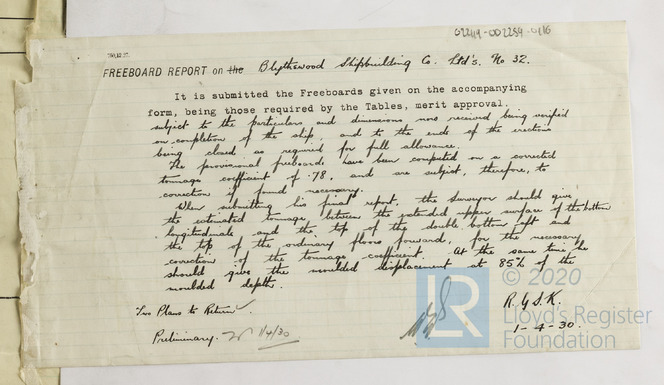 02249-002259-0116
FREEBOARD REPORT on the Blythswood Shipbuilding Co. Ltd's. No 32.
It is submitted the Freeboards given on the accompanying
form, being those required by the Tables, merit approval,
subject to the particulars and dimensions now received being verified
on completion of the ship, and to the ends of the erections
being closed as required for full allowance.
The provisional freeboards have been computed on a corrected
tonnage coefficient of .78, and are subject, therefore, to
correction if found necessary.
When submitting his final report, the Surveyor should give
the estimated tonnage between the extended upper surface of the bottom
longitudinals and the top of the double bottom aft and
the top of the ordinary floors forward, for the necessary
correction of the tonnage coefficient. At the same time he
should give the moulded displacement at 85% of the
moulded depth.
Two Plans to Return
R.G.S.K.
1-4-30.
Preliminary. 1/4/30
© 2020
LR
Lloyd's Register
Foundation